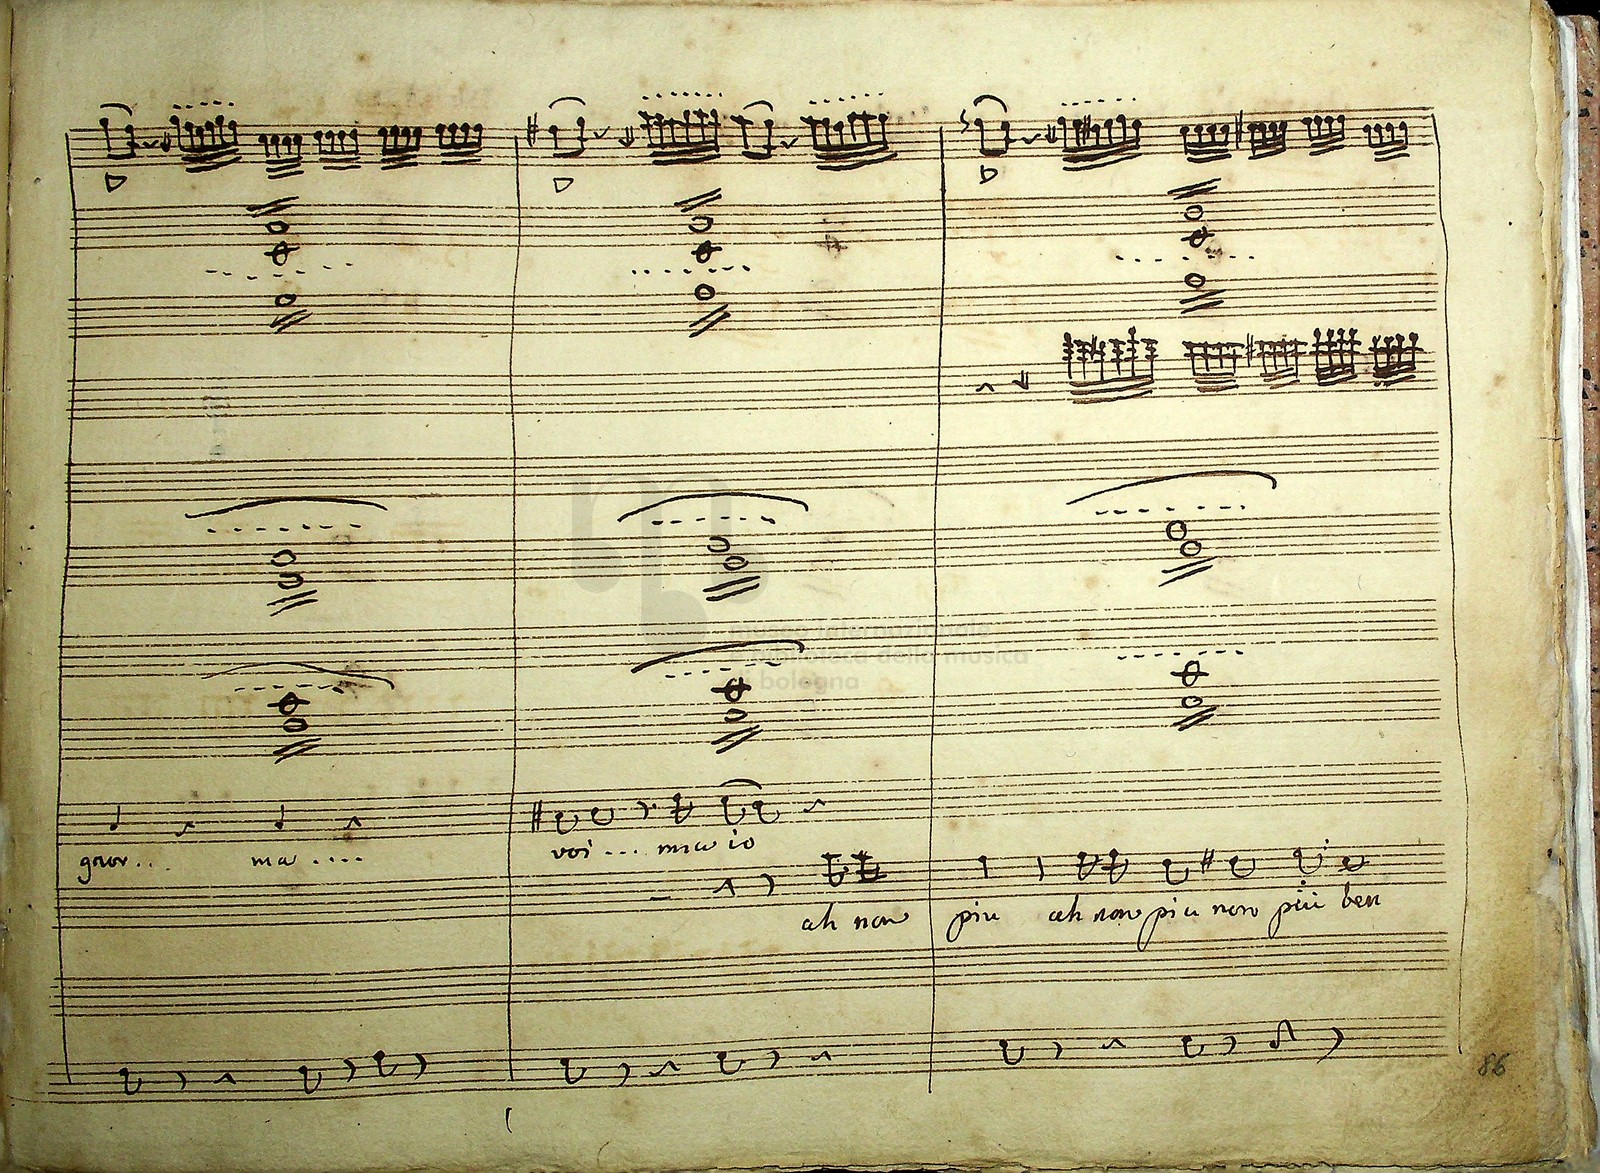 museo internazionale
e biblioteca della musica
di bologna
ma .... voi ... ma io
ah non piu ah non piu non più ben
86